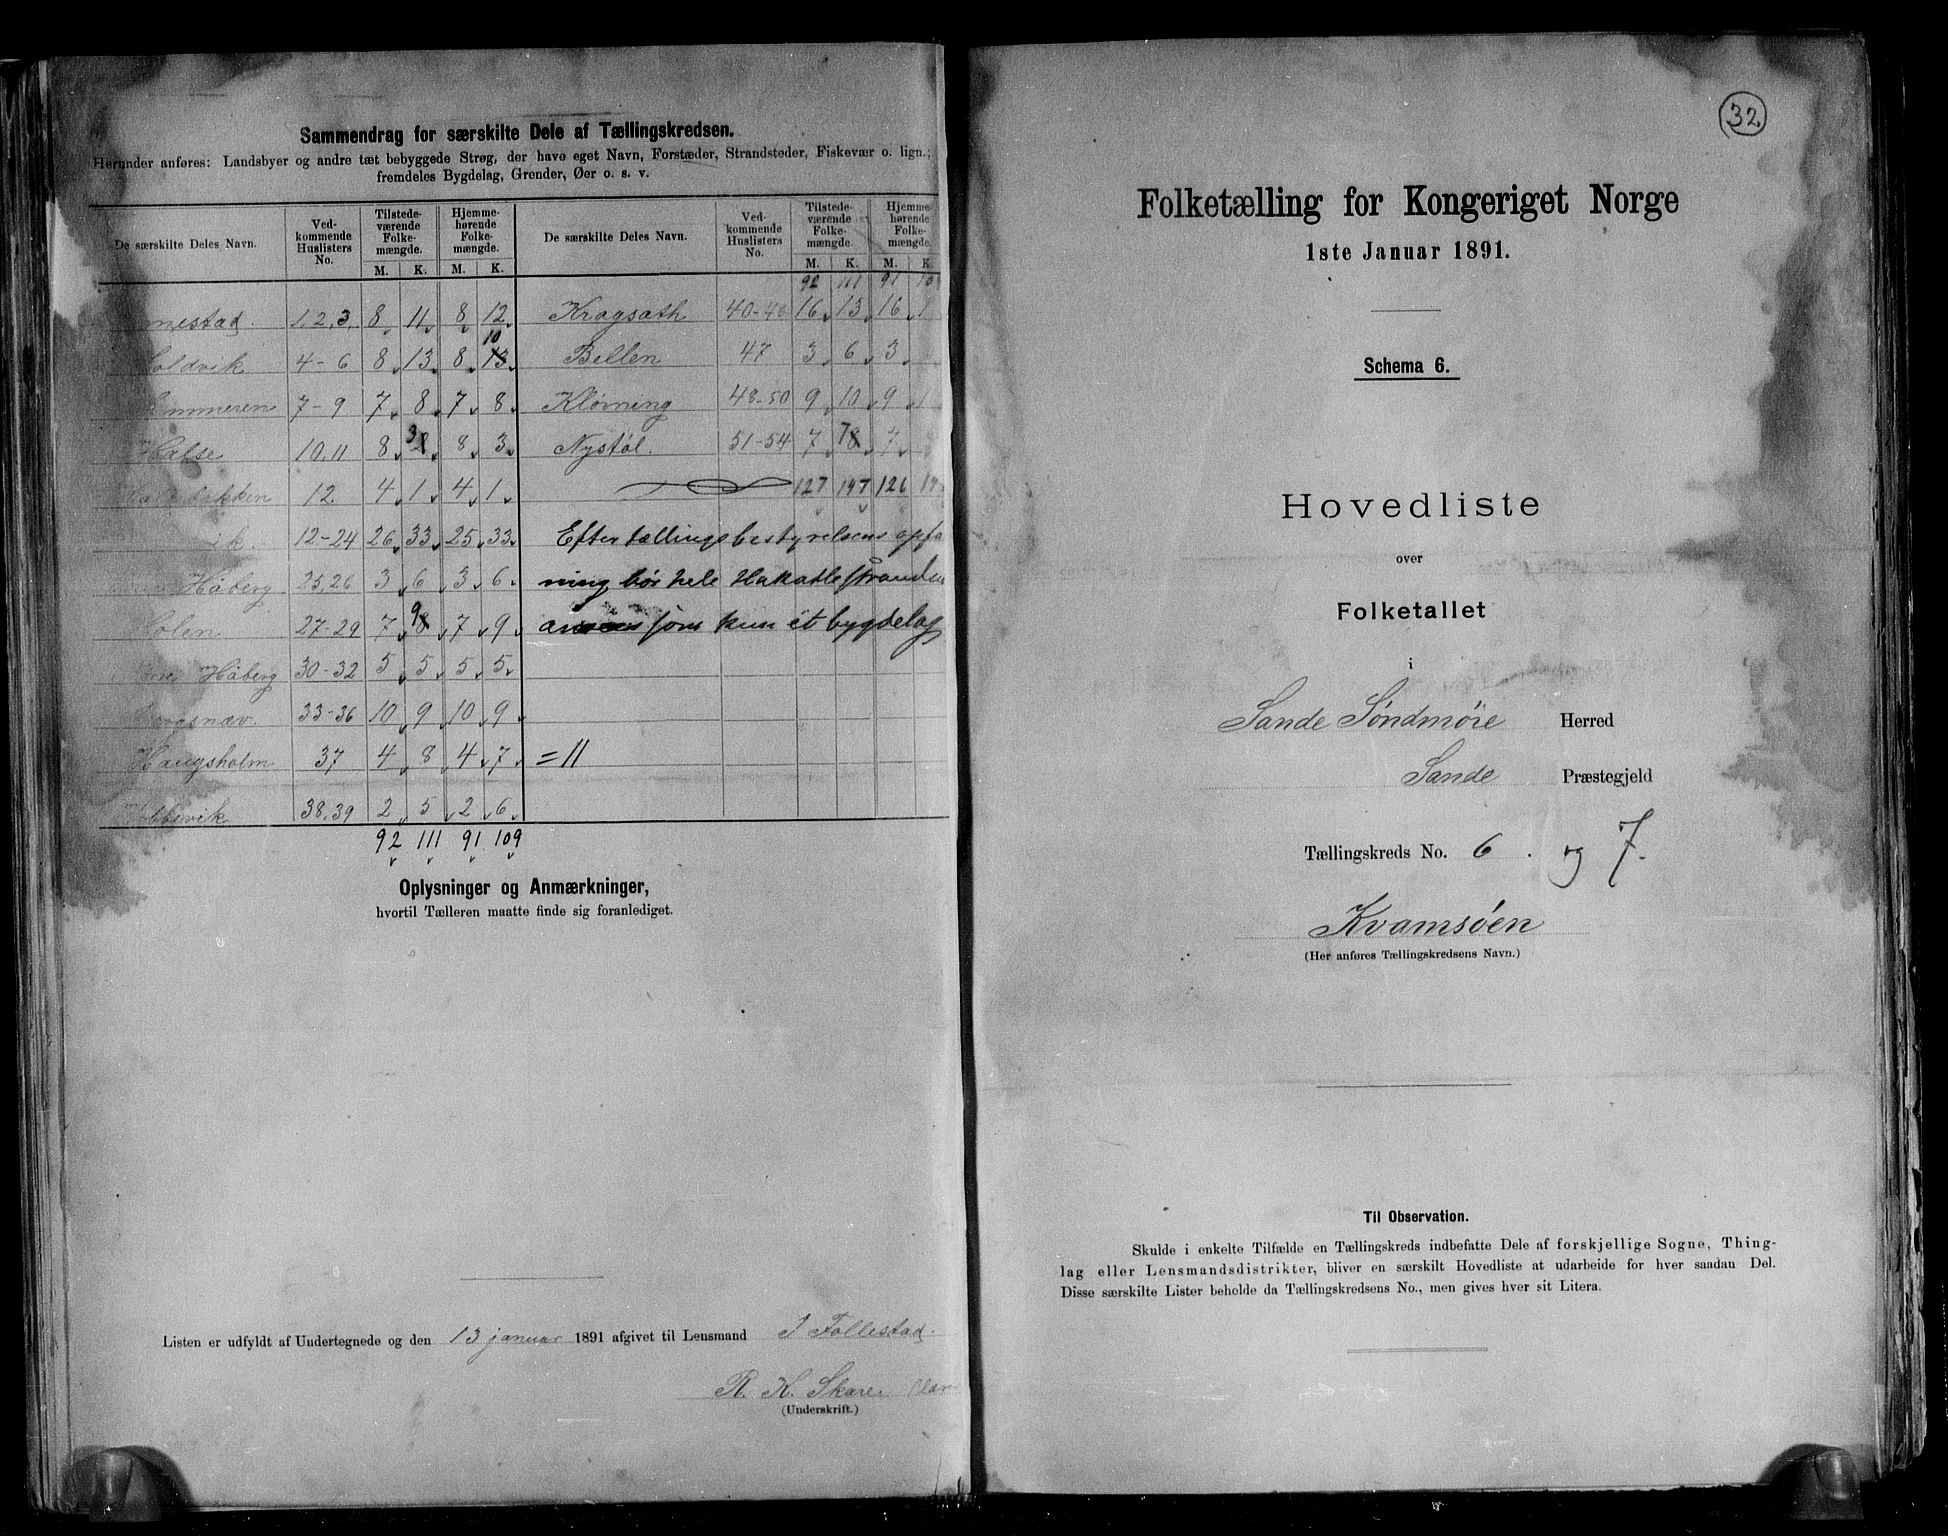 Sammendrag for særskilte Dele af Tællingskredsen.
Herunder anføres: Landsbyer og andre tæt bebyggede Strøg, der have eget Navn, Forstæder, Strandsteder, Fiskevær o. lign.;
fremdeles Bygdelag, Grender, Øer o. s. v.
De særskilte Deles Navn. Ved-kommende Huslisters No. Tilstede-værende Folke-mængde. Hjemme-hørende Folke-mængde. De særskilte Deles Navn. Ved-kommende Huslisters No. Tilstede-værende Folke-mængde. Hjemme-hørende Folke-mængde.
M. K. M. K. M. K. M. K.
92 111 91 10
nestad. 1,2,3. 8 11 8 12 Kragsath 40-46 16 13 16 1
oldvik 4-6 8 13 8 10 13 Bellen 47 3 6 3
7-9 7 8 7 8 Kløvning 48-50 9 10 9 1
Halse 10,11 8 3 2 8 3 Nystøl. 51-54 7 7 8 7
bakken 12. 4 1 4 1 127 147 126 14
ik. 12-24 26 33 25 33 Efter tællingsbestyrelsens opfa
Håberg 25,26 3 6 3 6 ning bør hele Hakallestranden
Holen 27-29 7 9 8 7 9 som kun ét bygdelag
Håberg 30-32 5 5 5 5
33-36 10 9 10 9
Haugsholm 37 4 8 4 7 = 11
38,39 2 5 2 6
92 111 91 109
Oplysninger og Anmærkninger,
hvortil Tælleren maatte finde sig foranlediget.
Listen er udfyldt af Undertegnede og den 13 januar 1891 afgivet til Lensmand J Follestad.
R. K. Skare
(Underskrift.)
32
Folketælling for Kongeriget Norge
1ste Januar 1891.
Schema 6.
Hovedliste
over
Folketallet
i
Sande Søndmøre Herred
Sande Præstegjeld
Tællingskreds No. 6. og 7.
Kvamsøen
(Her anføres Tællingskredsens Navn.)
Til Observation.
Skulde i enkelte Tilfælde en Tællingskreds indbefatte Dele af forskjellige Sogne, Thing-
lag eller Lensmandsdistrikter, bliver en særskilt Hovedliste at udarbeide for hver saadan Del.
Disse særskilte Lister beholde da Tællingskredsens No., men gives hver sit Litera.